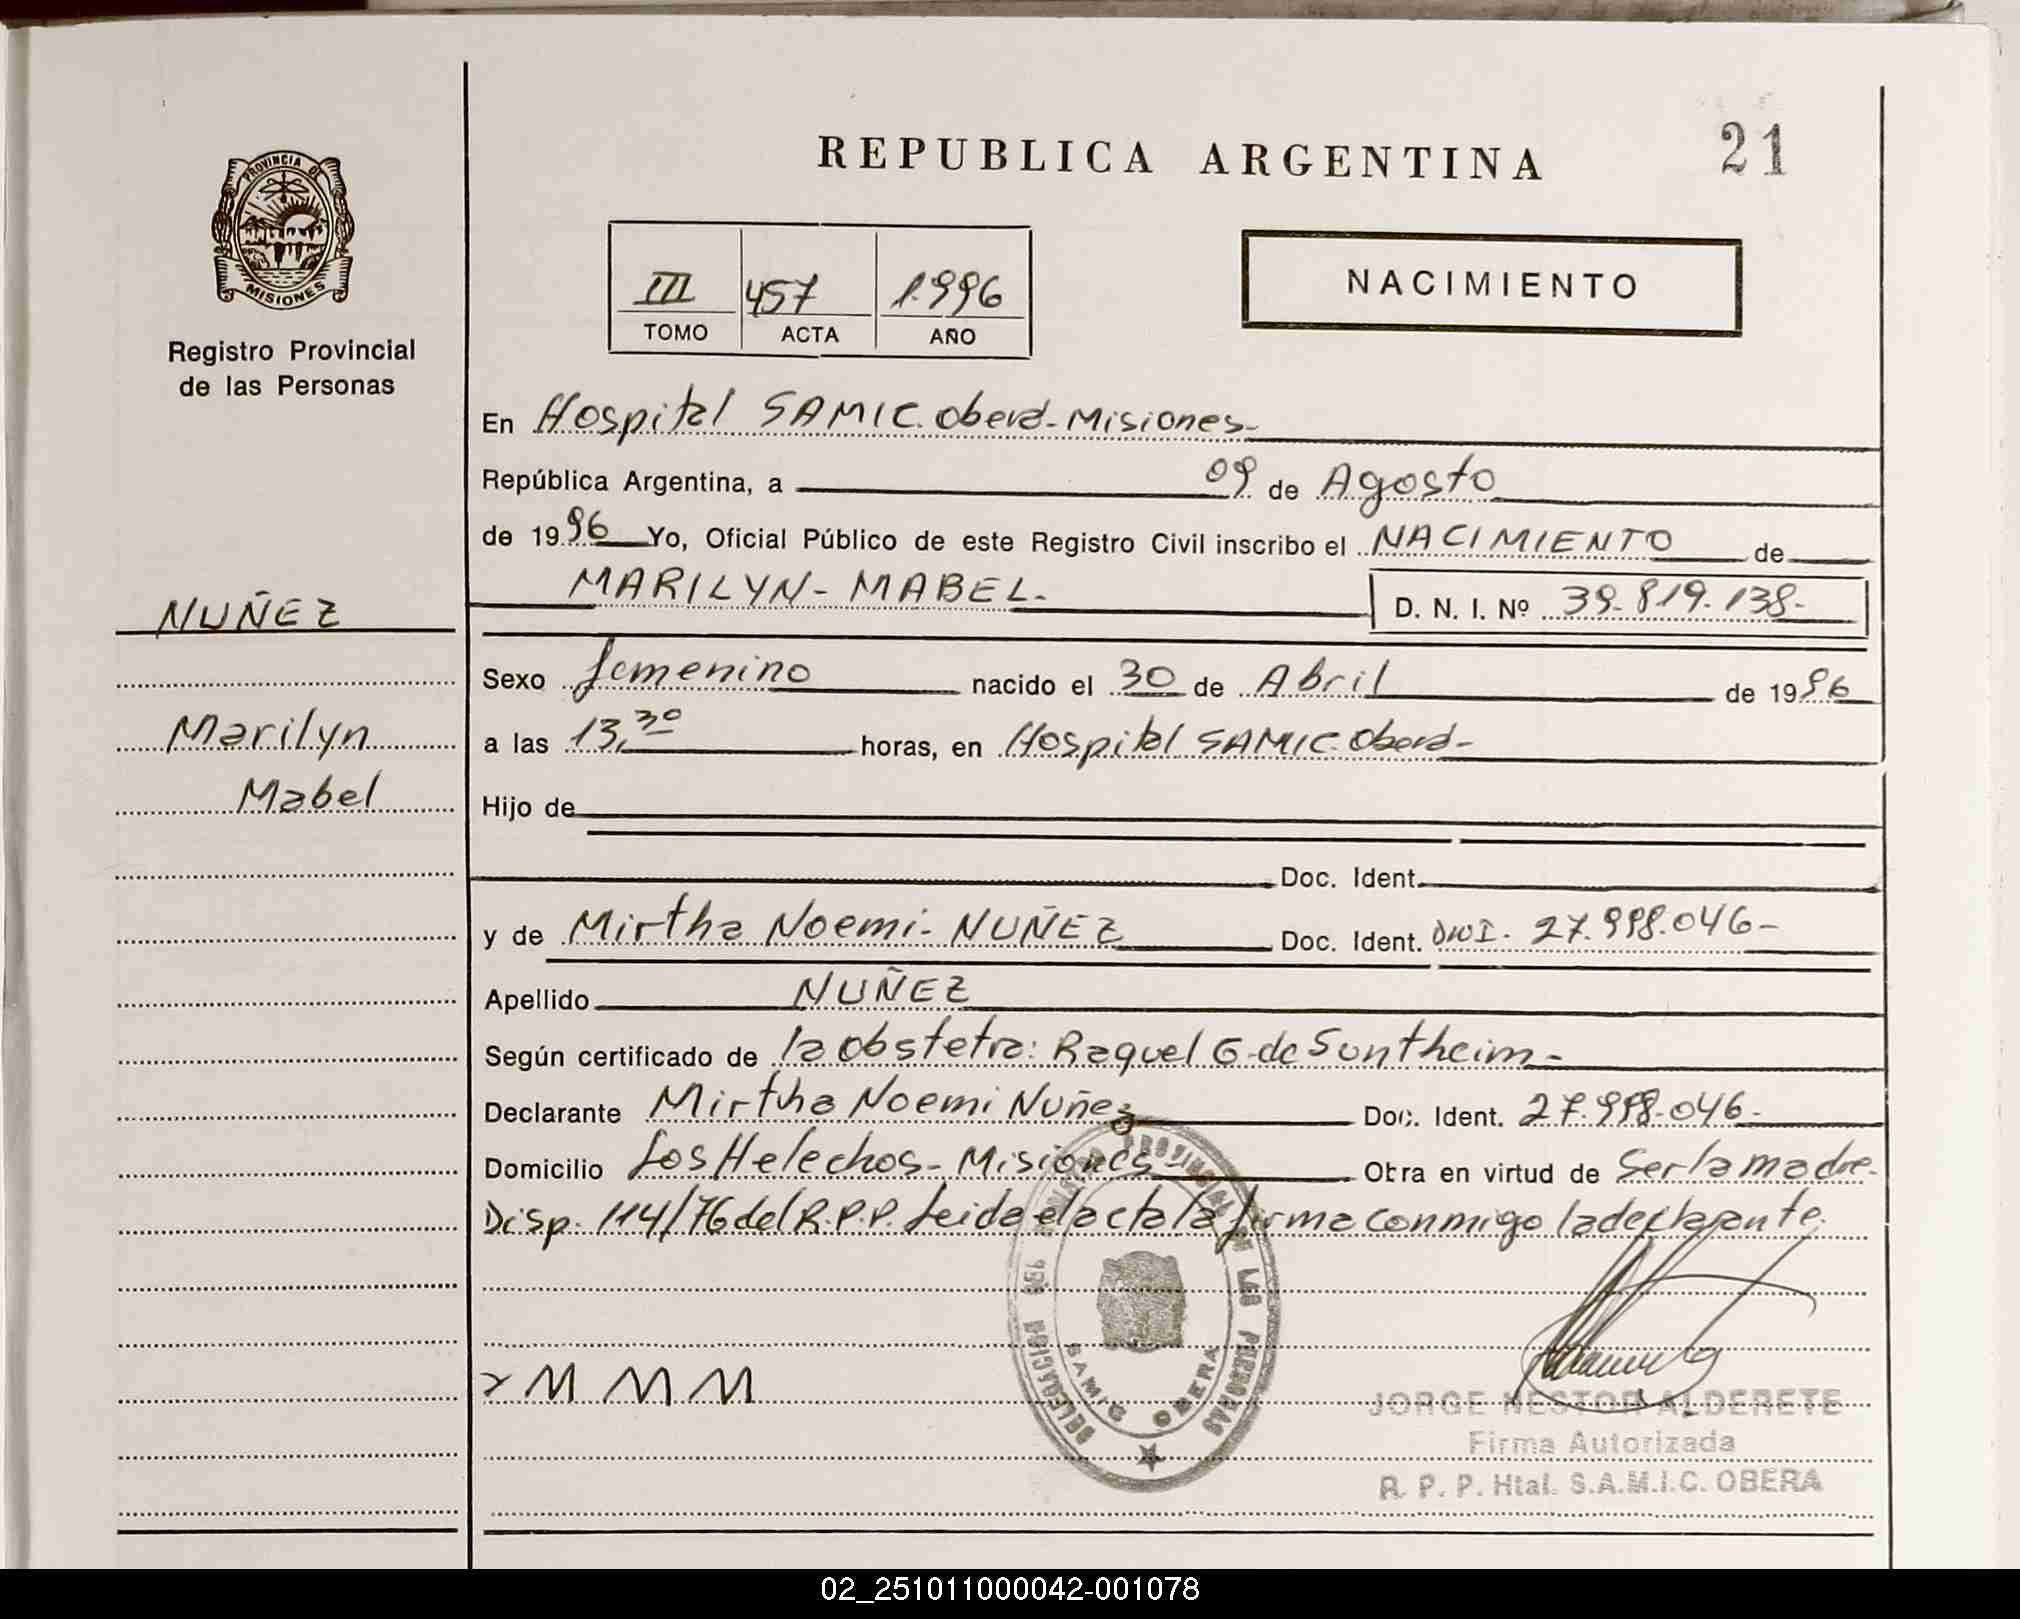 REPUBLICA ARGENTINA
21
PROVINCIA DE
MISIONES
Registro Provincial
de las Personas
III
457
1.996
TOMO
ACTA
AÑO
NACIMIENTO
En Hospital SAMIC. Oberá - Misiones-
República Argentina, a 09 de Agosto
de 1996 Yo, Oficial Público de este Registro Civil inscribo el NACIMIENTO de
MARILYN - MABEL.
D. N. I. Nº 39.819.138-
NUÑEZ
Sexo femenino nacido el 30 de Abril de 1996
Marilyn
a las 13,30 horas, en Hospital SAMIC. Oberá-
Mabel
Hijo de
Doc. Ident.
y de Mirtha Noemi - NUÑEZ Doc. Ident. DNI. 27.998.046-
Apellido NUÑEZ
Según certificado de la obstetra: Raquel G. de Suntheim-
Declarante Mirtha Noemi Nuñez Doc. Ident. 27.998.046-
Domicilio Los Helechos - Misiones- Obra en virtud de Ser la madre-
Disp. 114/76 del R.P.P. Leida el acta la firma conmigo la declarante.
DELEGACION REGISTRO PROVINCIAL DE LAS PERSONAS
SAMIC OBERA
M M M
JORGE NESTOR ALDERETE
Firma Autorizada
R. P. P. Htal. S.A.M.I.C. OBERA
02_251011000042-001078